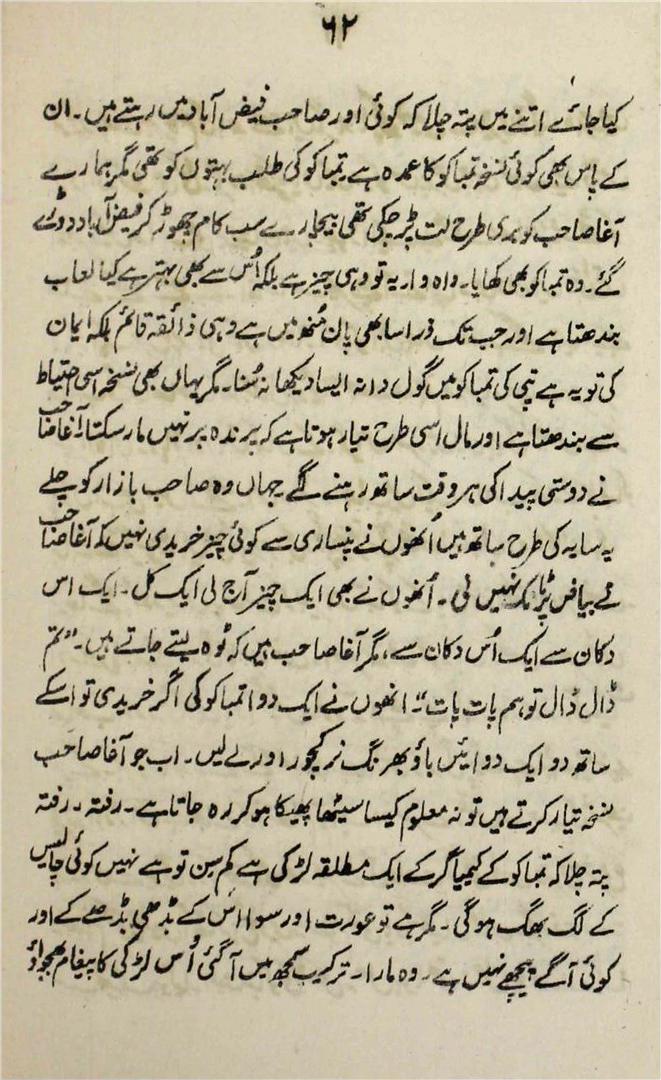 ۶۲
کیا جائے اتنے میں پتہ چلا کہ کوئی اور صاحب فیض آباد میں رہتے ہیں۔ ان
کے پاس بھی کوئی نسخہ تمباکو کا عمدہ ہے تمباکو کی طلب بہتوں کو تھی مگر ہمارے
آغا صاحب کو بری طرح لت پڑ چکی تھی بیچارے سب کام چھوڑ کر فیض آباد دوڑے
گئے۔ وہ تمباکو بھی کھایا۔ واہ وا۔ یہ تو وہی چیز ہے بلکہ اُس سے بھی بہتر ہے کیا لعاب
بندھتا ہے اور جب تک ذرا سا بھی پان مُنھ میں ہے وہی ذائقہ قائم بلکہ ایمان
کی تو یہ ہے پتی کی تمباکو میں گول دانہ ایسا دیکھا نہ سُنا۔ مگر یہاں بھی نسخہ اسی احتیاط
سے بندھتا ہے اور مال اسی طرح تیار ہوتا ہے کہ پرندہ پر نہیں مار سکتا۔ آغا صاحب
نے دوستی پیدا کی ہر وقت ساتھ رہنے لگے جہاں وہ صاحب بازار کو چلے
یہ سایہ کی طرح ساتھ ہیں اُنھوں نے پنساری سے کوئی چیز خریدی نہیں کہ آغا صاحب
نے بیاض پر ٹانک نہیں لی۔ اُنھوں نے بھی ایک چیز آج لی ایک کل۔ ایک اس
دکان سے ایک اُس دکان سے، مگر آغا صاحب ہیں کہ ٹوہ لیتے جاتے ہیں۔ "تم
ڈال ڈال تو ہم پات پات"۔ انھوں نے ایک دوا تمباکو کی اگر خریدی تو اسکے
ساتھ دو ایک دوائیں باؤ بھرنگ نرکچور اور لے لیں۔ اب جو آغا صاحب
نسخہ تیار کرتے ہیں تو نہ معلوم کیسا سیٹھا پھیکا ہو کر رہ جاتا ہے۔ رفتہ۔ رفتہ
پتہ چلا کہ تمباکو کے کیمیا گر کے ایک مطلقہ لڑکی ہے کم سن تو ہے نہیں کوئی چالیس
کے لگ بھگ ہوگی۔ مگر ہے تو عورت اور سوا اس کے بڈھی بڈھے کے اور
کوئی آگے پیچھے نہیں ہے۔ وہ مارا۔ ترکیب سمجھ میں آ گئی اُس لڑکی کا پیغام بھجواؤ